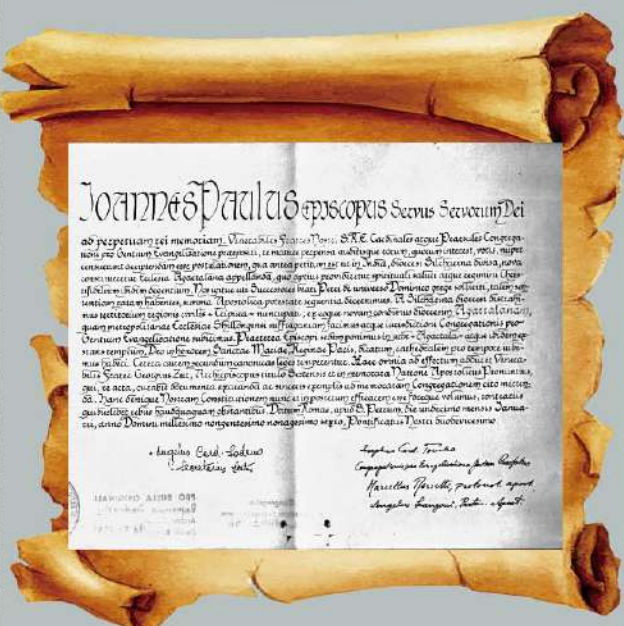 IOANNES PAULUS EPISCOPUS Servus Servorum Dei
ad perpetuam rei memoriam. Venerabiles Fratres Nostri S.R.E. Cardinales atque Praesules Congrega-
tioni pro Gentium Evangelizatione praepositi, re mature perpensa auditisque eorum, quorum interest, votis, nuper
censuerunt accipiendam esse postulationem, qua antea petitum est ut in India, dioecesi Silcharena divisa, nova
constitueretur Ecclesia Agartalana appellanda, quo aptius provideretur spirituali saluti atque regimini Chris-
tifidelium ibidem degentium. Nos igitur ut Successores beati Petri de universo Dominico grege solliciti, talem sen-
tentiam ratam habentes, summa Apostolica potestate sequentia decernimus. A Silcharena dioecesi distrahi-
mus territorium regionis civilis - Tripura - nuncupati; ex eoque novam condimus dioecesim Agartalanam,
quam metropolitanae Ecclesiae Shillongensi suffraganeam facimus atque iurisdictioni Congregationis pro
Gentium Evangelizatione subicimus. Praeterea Episcopi sedem ponimus in urbe - Agartala - atque ibidem ex-
stans templum, Deo in honorem Sanctae Mariae, Reginae Pacis, dicatum, cathedralem pro tempore iube-
mus haberi. Cetera autem secundum canonicas leges temperentur. Haec omnia ad effectum adducet Venera-
bilis Frater Georgius Zur, Archiepiscopus titulo Sestensis et in memorata Natione Apostolicus Pronuntius,
qui, re acta, curabit documenta exaranda ac sinceris exemplis ad memoratam Congregationem cito mitten-
da. Hanc denique Nostram Constitutionem nunc et in posterum efficacem esse iubemus volumus, contrariis
quibuslibet rebus haudquaquam obstantibus. Datum Romae, apud S. Petrum, die undecimo mensis Ianua-
rii, anno Domini millesimo nongentesimo nonagesimo sexto, Pontificatus Nostri duodevicesimo.
+ Angelus Card. Sodano
Secretarius
Card. Tomko
Marcellus Rossetti, protonot. apost.
PRO BULLA ORIGINALI